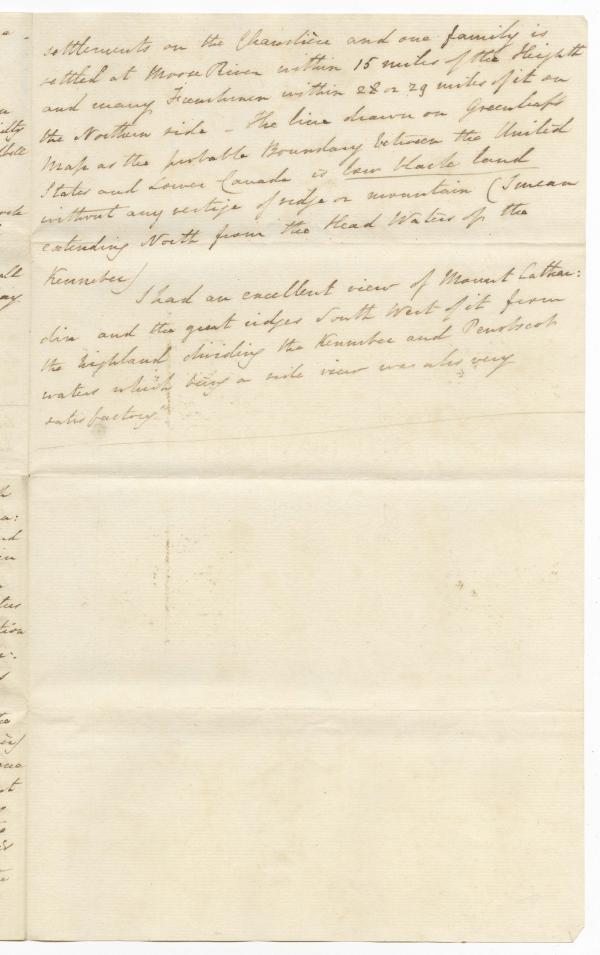 settlements on the Chaudière and one family is
settled at Moose River within 15 miles of the Heighth
and many Frenchmen within 28 or 29 miles of it on
the Northern side - The line drawn on Greenleafs
Map as the probable Boundary between the United
States and Lower Canada is low black land
without any vertige of ridge or mountain (I mean
extending North from the Head Waters of the
Kennebec)
I had an excellent view of Mount Cathar:
din and the great ridges South West of it from
the highland dividing the Kennebec and Penobscot
waters which being a side view was also very
satisfactory"